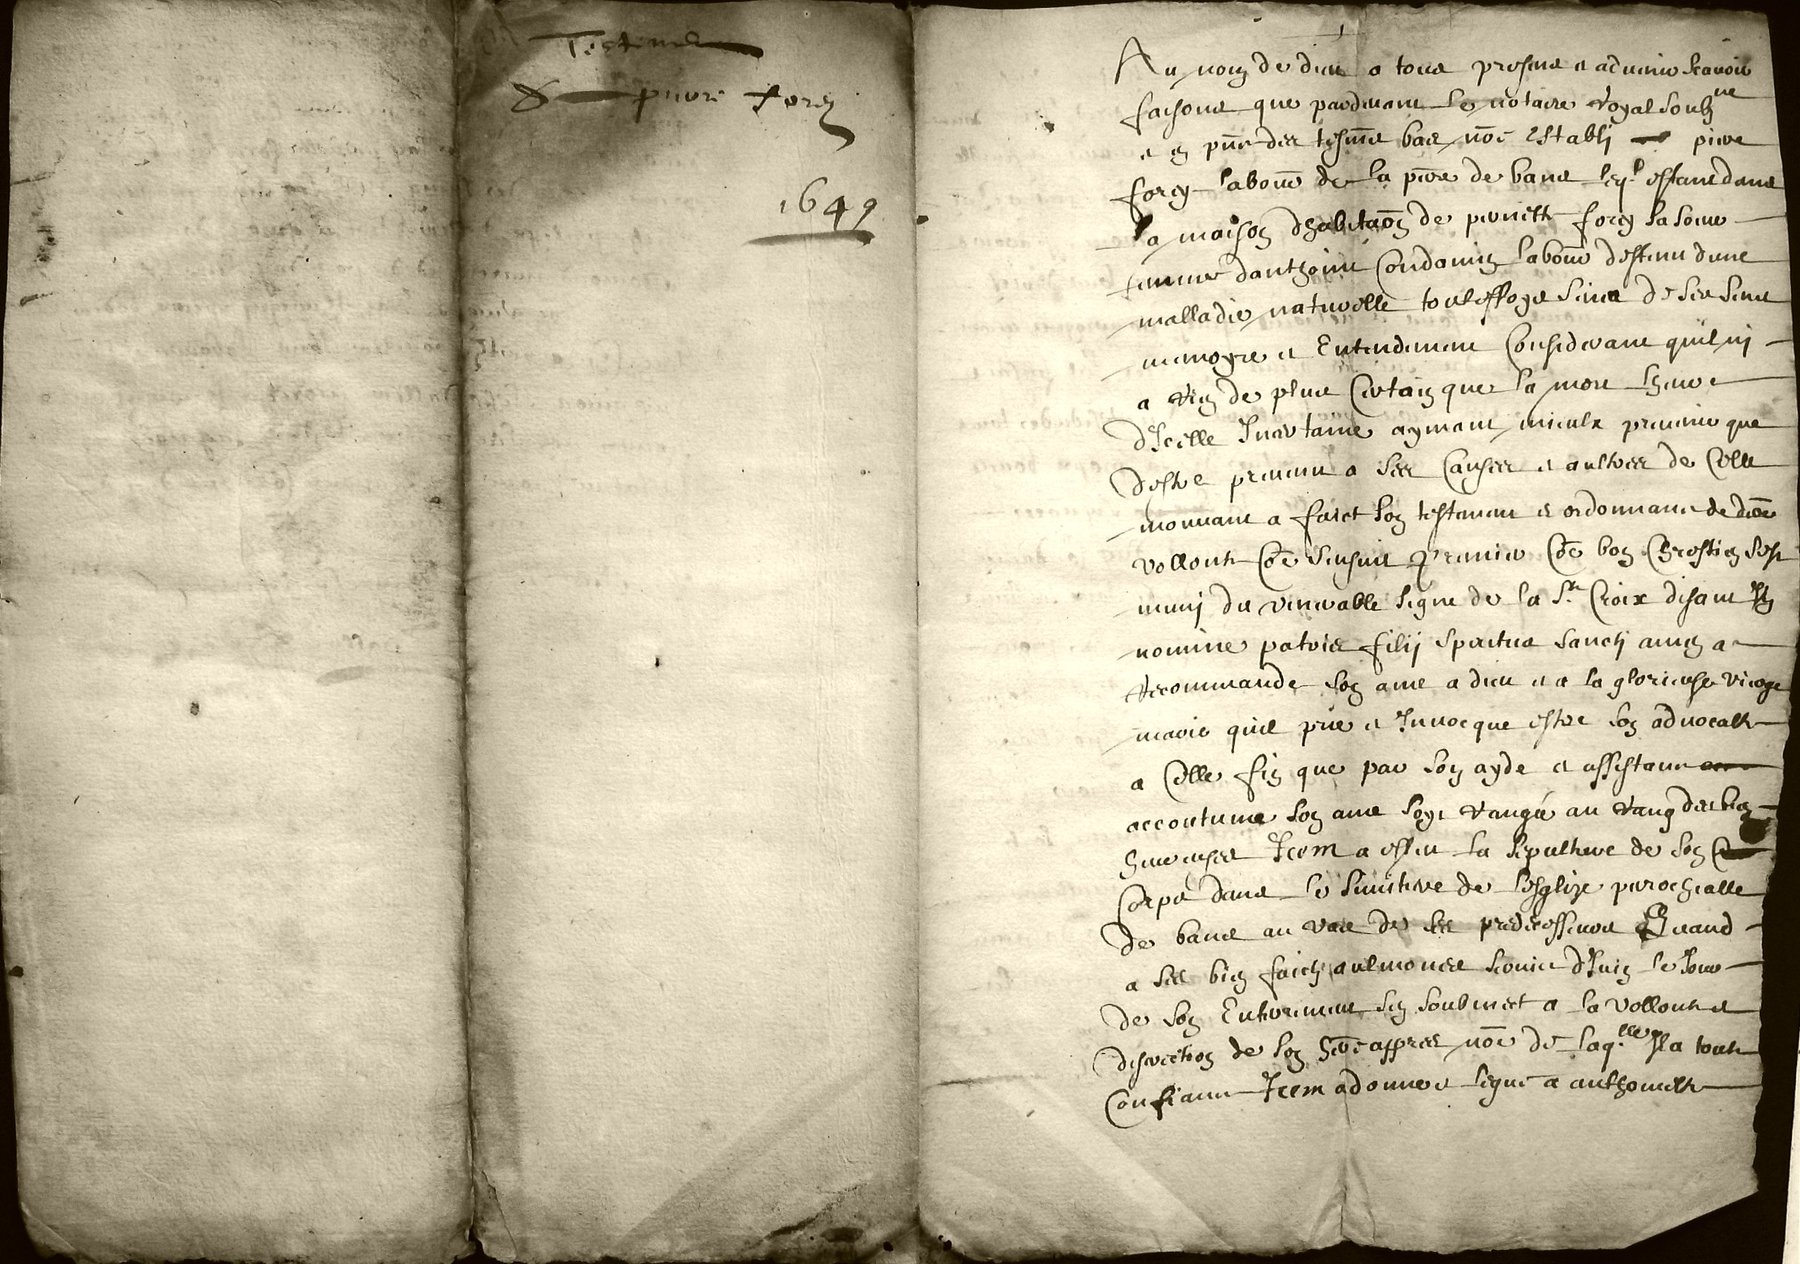 Testement
De pierre forey
1649
Au nom de dieu a tous presens et advenir scavoir
faisons que pardevant le notaire royal soubz.ne
et en pnce des tesmes bas nōe establi pierre
forey laboūr de la pōsse de bans leql estant dans
la maison dhabitaōn de pierrette forey sa soeur
femme danthoine Condamin laboūr destenu dune
malladie naturelle toutesfoys sains de ses sens
memoyre et Entendement Considerant quil ni
a rien de plus Certain que la mort lheure
dIcelle Incertaine aymant mieulx prevenir que
destre prevenu a ses Causes et aultres de Celle
mouvant a faict son testament et ordonnance de dōre
vollonte Cōe sensuit Premier Cōe bon Chrestien sest
muni du venerable signe de la Ste Croix disant In
nomine patris filij spiritus sancti amen a
recommande son ame a dieu et a la glorieuse vierge
marie quil prie et Invocque estre son advocatte
a Celle fin que par son ayde et assistance
accoutume son ame soyt rangée au rang des bien
heureuses Item a esleu la sepulture de son
Corps dans le simitiere de lesglize parochialle
de bans au vas de ses predecesseurs Quand
a ses bien faictz aulmones service dIvin le Jour
de son Enterrement sen soubmect a la vollonte et
discretion de son herē appres nōe de laqlle Il a toute
Confiance Item a donne et legue a anthoinette